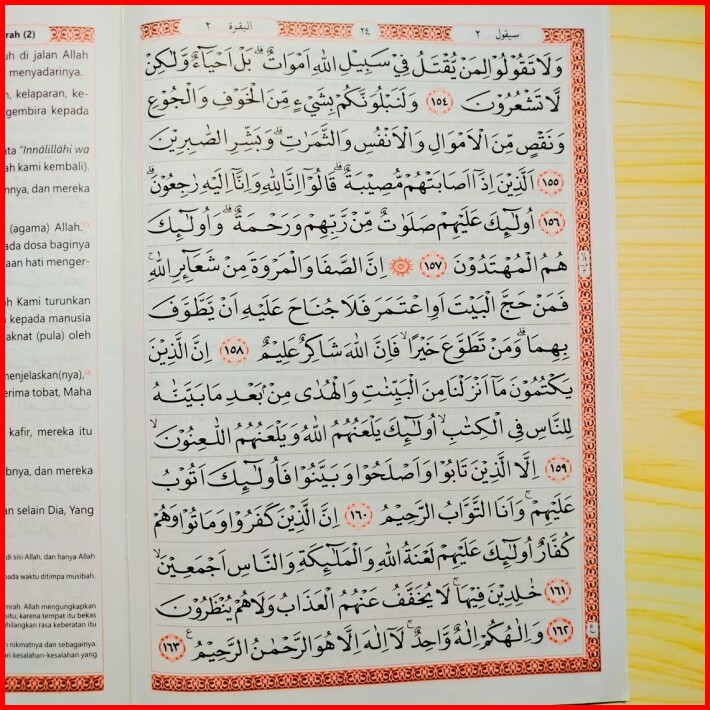 سيقول ٢
٢٤
البقرة ٢
وَلَا تَقُوْلُوْا لِمَنْ يُّقْتَلُ فِيْ سَبِيْلِ اللّٰهِ اَمْوَاتٌ ۗ بَلْ اَحْيَاۤءٌ وَّلٰكِنْ
لَّا تَشْعُرُوْنَ ١٥٤ وَلَنَبْلُوَنَّكُمْ بِشَيْءٍ مِّنَ الْخَوْفِ وَالْجُوْعِ
وَنَقْصٍ مِّنَ الْاَمْوَالِ وَالْاَنْفُسِ وَالثَّمَرٰتِۗ وَبَشِّرِ الصّٰبِرِيْنَ
١٥٥ اَلَّذِيْنَ اِذَآ اَصَابَتْهُمْ مُّصِيْبَةٌ ۗ قَالُوْٓا اِنَّا لِلّٰهِ وَاِنَّآ اِلَيْهِ رٰجِعُوْنَۗ
١٥٦ اُولٰۤىِٕكَ عَلَيْهِمْ صَلَوٰتٌ مِّنْ رَّبِّهِمْ وَرَحْمَةٌ ۗ وَاُولٰۤىِٕكَ
هُمُ الْمُهْتَدُوْنَ ١٥٧ ۞ اِنَّ الصَّفَا وَالْمَرْوَةَ مِنْ شَعَاۤىِٕرِ اللّٰهِ ۚ
فَمَنْ حَجَّ الْبَيْتَ اَوِ اعْتَمَرَ فَلَا جُنَاحَ عَلَيْهِ اَنْ يَّطَّوَّفَ
بِهِمَاۗ وَمَنْ تَطَوَّعَ خَيْرًاۙ فَاِنَّ اللّٰهَ شَاكِرٌ عَلِيْمٌ ١٥٨ اِنَّ الَّذِيْنَ
يَكْتُمُوْنَ مَآ اَنْزَلْنَا مِنَ الْبَيِّنٰتِ وَالْهُدٰى مِنْۢ بَعْدِ مَا بَيَّنّٰهُ
لِلنَّاسِ فِى الْكِتٰبِۙ اُولٰۤىِٕكَ يَلْعَنُهُمُ اللّٰهُ وَيَلْعَنُهُمُ اللّٰعِنُوْنَۙ
١٥٩ اِلَّا الَّذِيْنَ تَابُوْا وَاَصْلَحُوْا وَبَيَّنُوْا فَاُولٰۤىِٕكَ اَتُوْبُ
عَلَيْهِمْ ۚ وَاَنَا التَّوَّابُ الرَّحِيْمُ ١٦٠ اِنَّ الَّذِيْنَ كَفَرُوْا وَمَاتُوْا وَهُمْ
كُفَّارٌ اُولٰۤىِٕكَ عَلَيْهِمْ لَعْنَةُ اللّٰهِ وَالْمَلٰۤىِٕكَةِ وَالنَّاسِ اَجْمَعِيْنَۙ
١٦١ خٰلِدِيْنَ فِيْهَا ۚ لَا يُخَفَّفُ عَنْهُمُ الْعَذَابُ وَلَا هُمْ يُنْظَرُوْنَ
١٦٢ وَاِلٰهُكُمْ اِلٰهٌ وَّاحِدٌۚ لَآ اِلٰهَ اِلَّا هُوَ الرَّحْمٰنُ الرَّحِيْمُ ࣖ ١٦٣
(2)
di jalan Allah
menyadarinya.
kelaparan, ke-
gembira kepada
"Innālillāhi wa
kami kembali).
dan mereka
(agama) Allah.⁵³
dosa baginya
hati menger-
Kami turunkan
kepada manusia
(pula) oleh
menjelaskan(nya),⁵⁴
tobat, Maha
kafir, mereka itu
dan mereka
selain Dia, Yang
di sisi Allah, dan hanya Allah
waktu ditimpa musibah,
Allah mengungkapkan
karena tempat itu bekas
rasa keberatan itu
nikmatnya dan sebagainya.
kesalahan-kesalahan yang